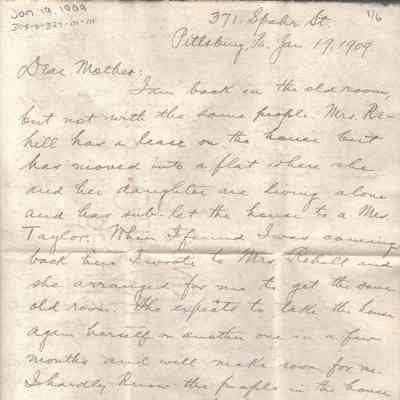 Jan 19, 1909
1/6
371 Spahr St.
Pittsburg, Pa. Jan 19, 1909
Dear Mother:
I am back in the old room,
but not with the same people. Mrs. Re-
hill has a lease on the house but
has moved into a flat where she
and her daughter are living alone
and has sub-let the house to a Mrs.
Taylor. When I found I was coming
back here I wrote to Mrs. Rehill and
she arranged for me to get the same
old room. She expects to take the house
again herself or another one in a few
months and will make room for me.
I hardly know the people in the house